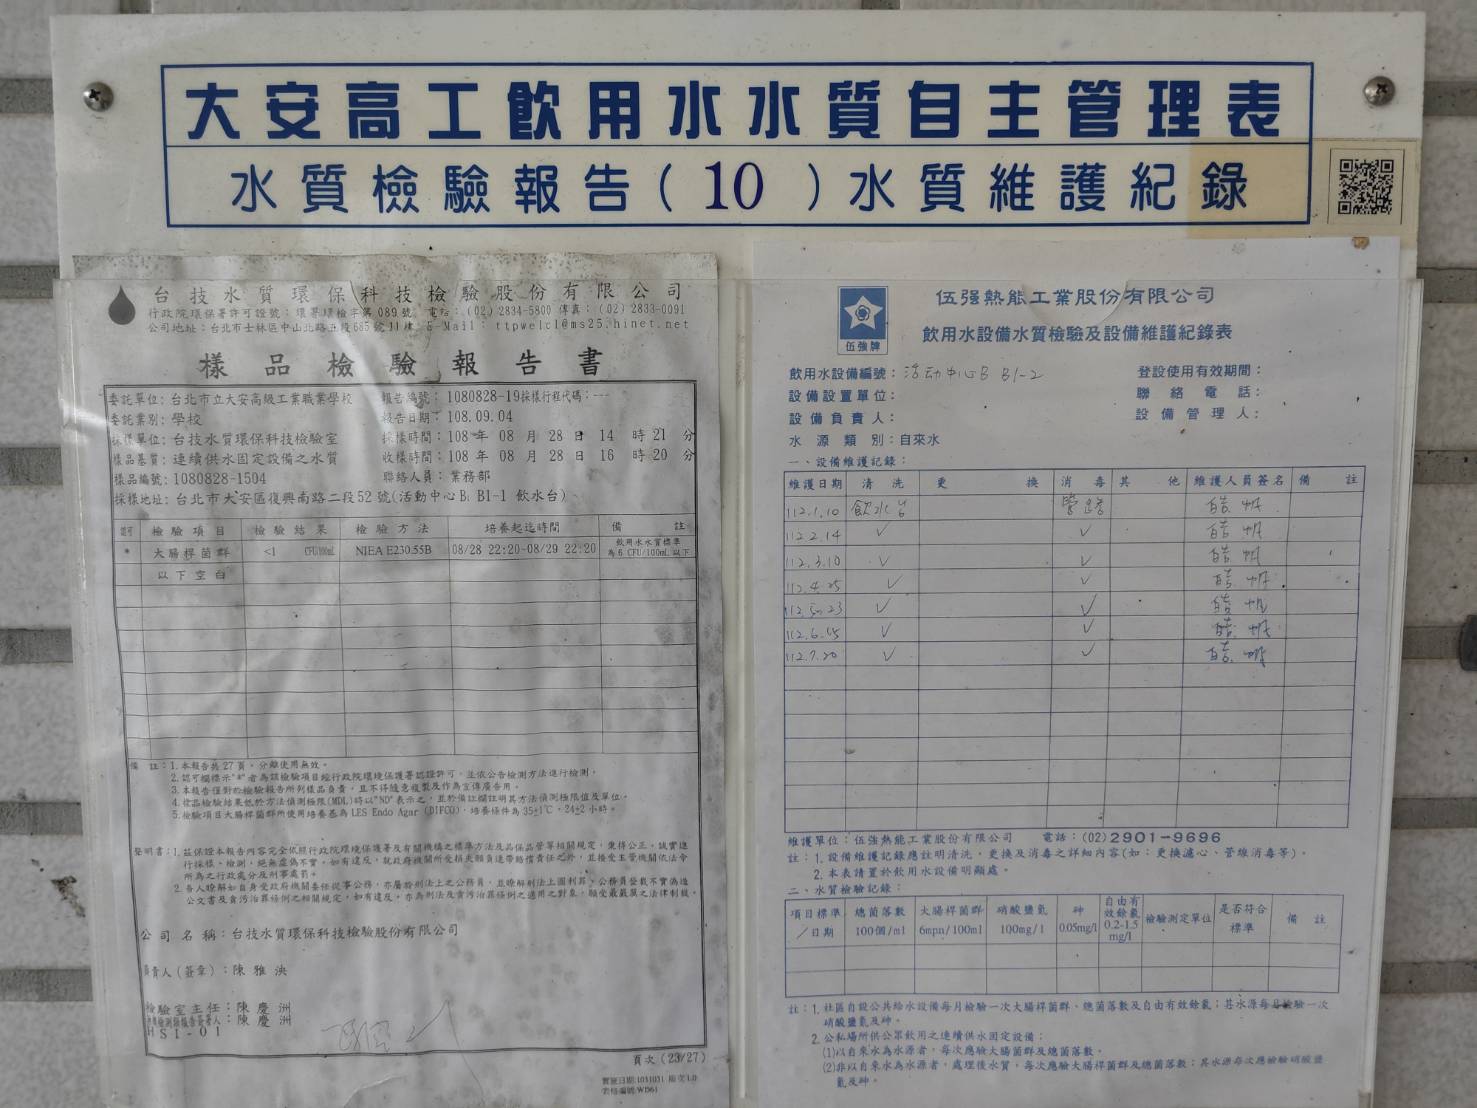 大安高工飲用水水質自主管理表
水質檢驗報告(10)水質維護紀錄
台技水質環保科技檢驗股份有限公司
行政院環保署許可證號：環署環檢字第089號 電話：(02)2834-5800 傳真：(02)2833-0091
公司地址：台北市士林區中山北路五段685號11樓 E-Mail：ttpwelcl@ms25.hinet.net
樣品檢驗報告書
委託單位：台北市立大安高級工業職業學校 報告編號：1080828-19採樣行程代碼：---
委託業別：學校 報告日期：108.09.04
採樣單位：台技水質環保科技檢驗室 採樣時間：108年08月28日14時21分
樣品基質：連續供水固定設備之水質 收樣時間：108年08月28日16時20分
樣品編號：1080828-1504 聯絡人員：業務部
採樣地址：台北市大安區復興南路二段52號(活動中心B B1-1 飲水台)
認可 檢驗項目 檢驗結果 檢驗方法 培養起迄時間 備註
* 大腸桿菌群 <1 CFU/100mL NIEA E230.55B 08/28 22:20-08/29 22:20 飲用水水質標準為6 CFU/100mL以下
以下空白
備註：1.本報告共27頁，分離使用無效。
2.認可欄標示"*"者為該檢驗項目經行政院環境保護署認證許可，並依公告檢測方法進行檢測。
3.本報告僅對於檢驗報告所列樣品負責，且不得隨意複製及作為宣傳廣告用。
4.樣品檢驗結果低於方法偵測極限(MDL)時以"ND"表示之，並於備註欄註明其方法偵測極限值及單位。
5.檢驗項目大腸桿菌群所使用培養基為LES Endo Agar (DIFCO)，培養條件為35±1℃，24±2小時。
聲明書：1.茲保證本報告內容完全依照行政院環境保護署及有關機構之標準方法及品保品管等相關規定，秉持公正、誠實進
行採樣、檢測。絕無虛偽不實。如有違反，就政府機關所受損失願負連帶賠償責任之外，並接受主管機關依法令
所為之行政處分及刑事處罰。
2.吾人瞭解如自身受政府機關委任從事公務，亦屬於刑法上之公務員，並瞭解刑法上圖利罪、公務員登載不實偽造
公文書及貪污治罪條例之相關規定，如有違反，亦為刑法及貪污治罪條例之適用之對象，願受最嚴厲之法律制裁。
公司名稱：台技水質環保科技檢驗股份有限公司
負責人(簽章)：陳雅泱
檢驗室主任：陳慶洲
陳慶洲
HSI-01
頁次(23/27)
伍強牌
伍强熱能工業股份有限公司
飲用水設備水質檢驗及設備維護紀錄表
飲用水設備編號：活動中心B B1-2 登設使用有效期間：
設備設置單位： 聯絡電話：
設備負責人： 設備管理人：
水源類別：自來水
一、設備維護記錄：
維護日期 清洗 更換 消毒 其他 維護人員簽名 備註
112.1.10 飲水台 管路
112.2.14 ✓ ✓
112.3.10 ✓ ✓
112.4.25 ✓ ✓
112.5.23 ✓ ✓
112.6.15 ✓ ✓
112.7.20 ✓ ✓
維護單位：伍強熱能工業股份有限公司 電話：(02)2901-9696
註：1.設備維護記錄應註明清洗、更換及消毒之詳細內容(如：更換濾心、管線消毒等)。
2.本表請置於飲用水設備明顯處。
二、水質檢驗記錄：
項目標準／日期 總菌落數100個/ml 大腸桿菌群6mpn/100ml 硝酸鹽氮100mg/l 砷0.05mg/l 自由有效餘氯0.2-1.5mg/l 檢驗測定單位 是否符合標準 備註
註：1.社區自設公共給水設備每月檢驗一次大腸桿菌群、總菌落數及自由有效餘氯；其水源每月檢驗一次
硝酸鹽氮及砷。
2.公私場所供公眾飲用之連續供水固定設備：
(1)以自來水為水源者，每次應驗大腸菌群及總菌落數。
(2)非以自來水為水源者，處理後水質，每次應驗大腸桿菌群及總菌落數；其水源每次應檢驗硝酸鹽
氮及砷。